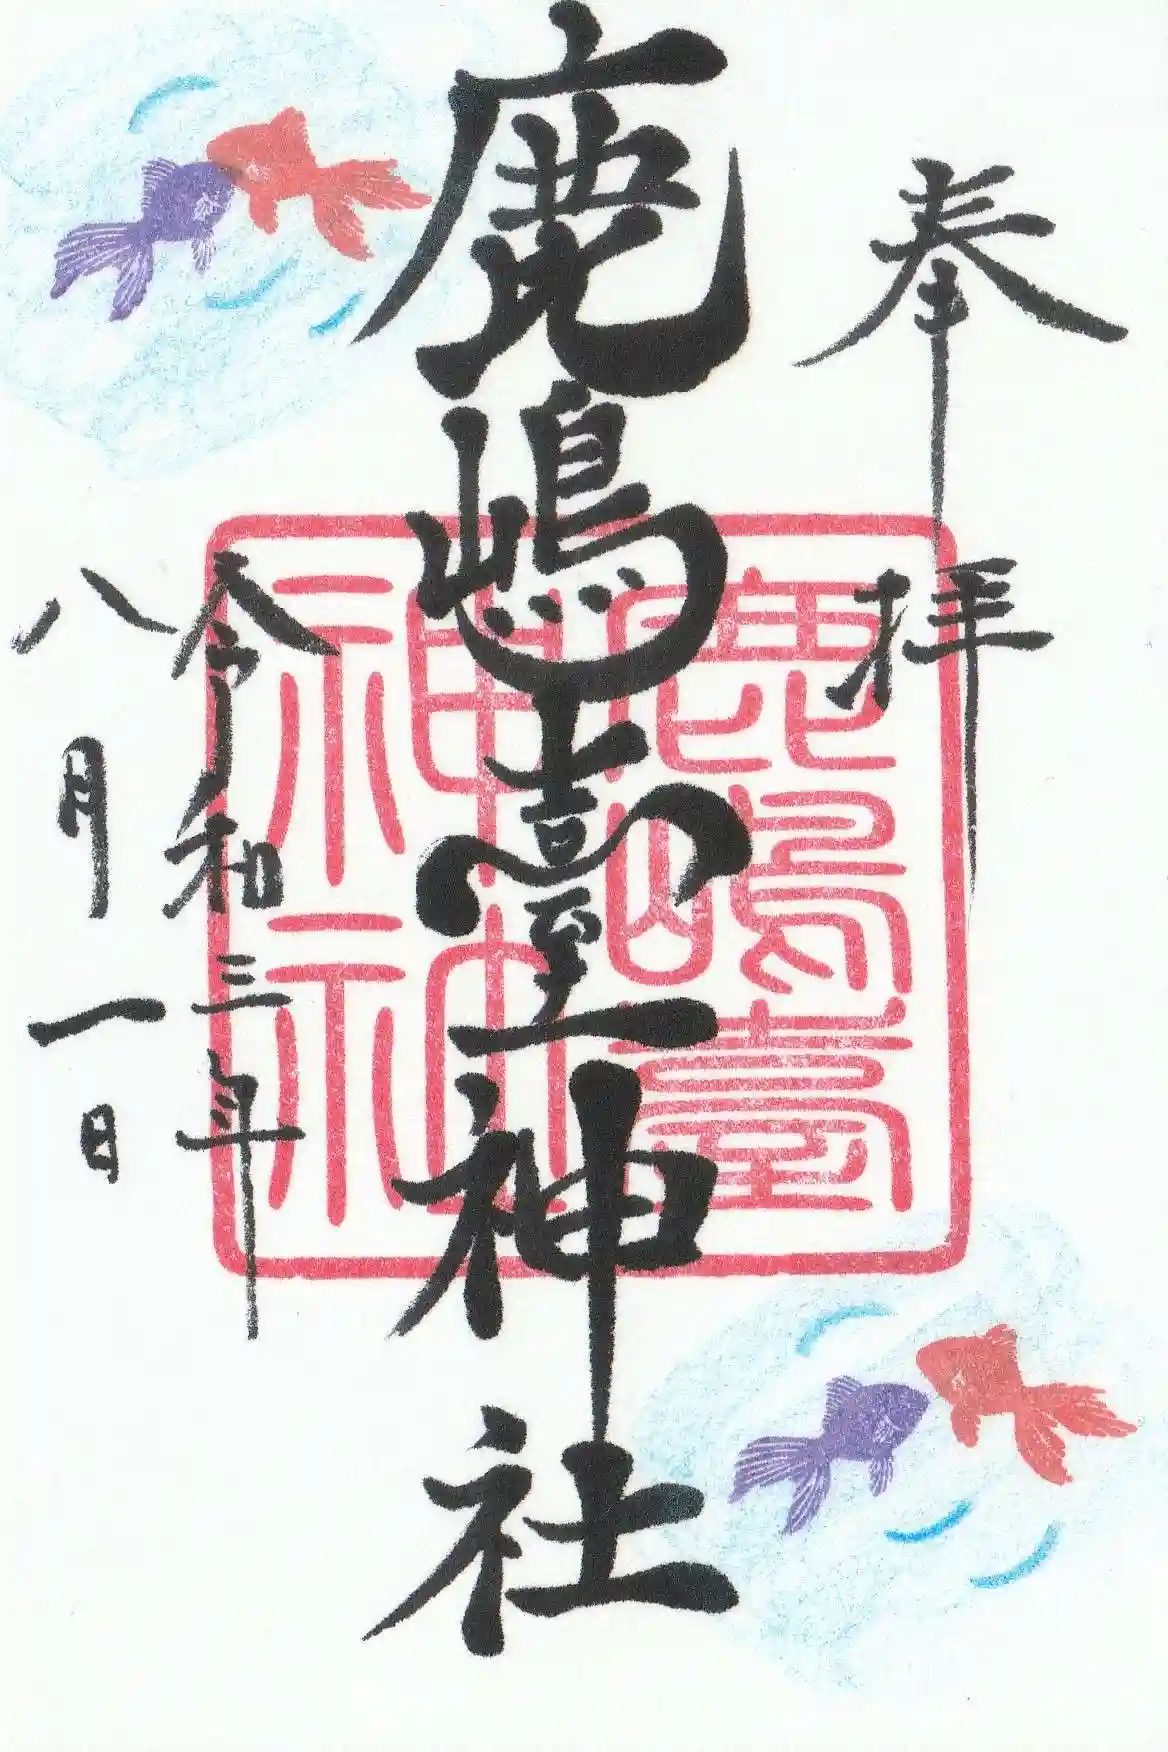 奉拝
鹿嶋臺神社
鹿嶋臺
神神
令和三年
八月一日